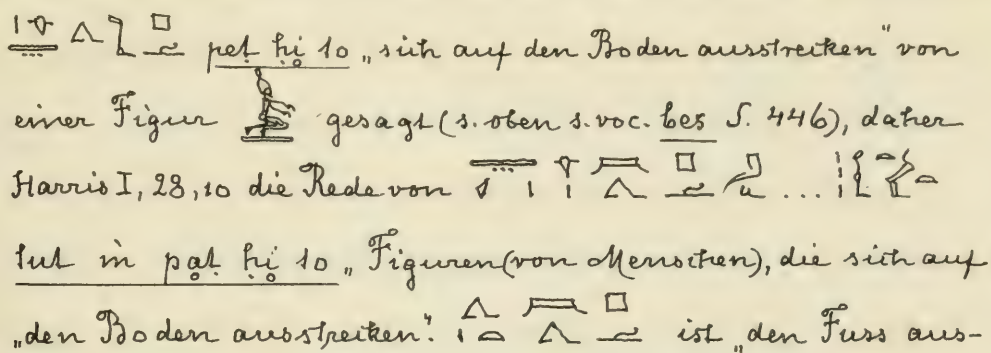 pet ḥi to „sich auf den Boden ausstrecken“ von
einer Figur gesagt (s. oben s. voc. bes S. 446), daher
Harris I, 28, 10 die Rede von ...
tut in pat ḥi to „Figuren (von Menschen), die sich auf
„den Boden ausstrecken“. ist „den Fuss aus-